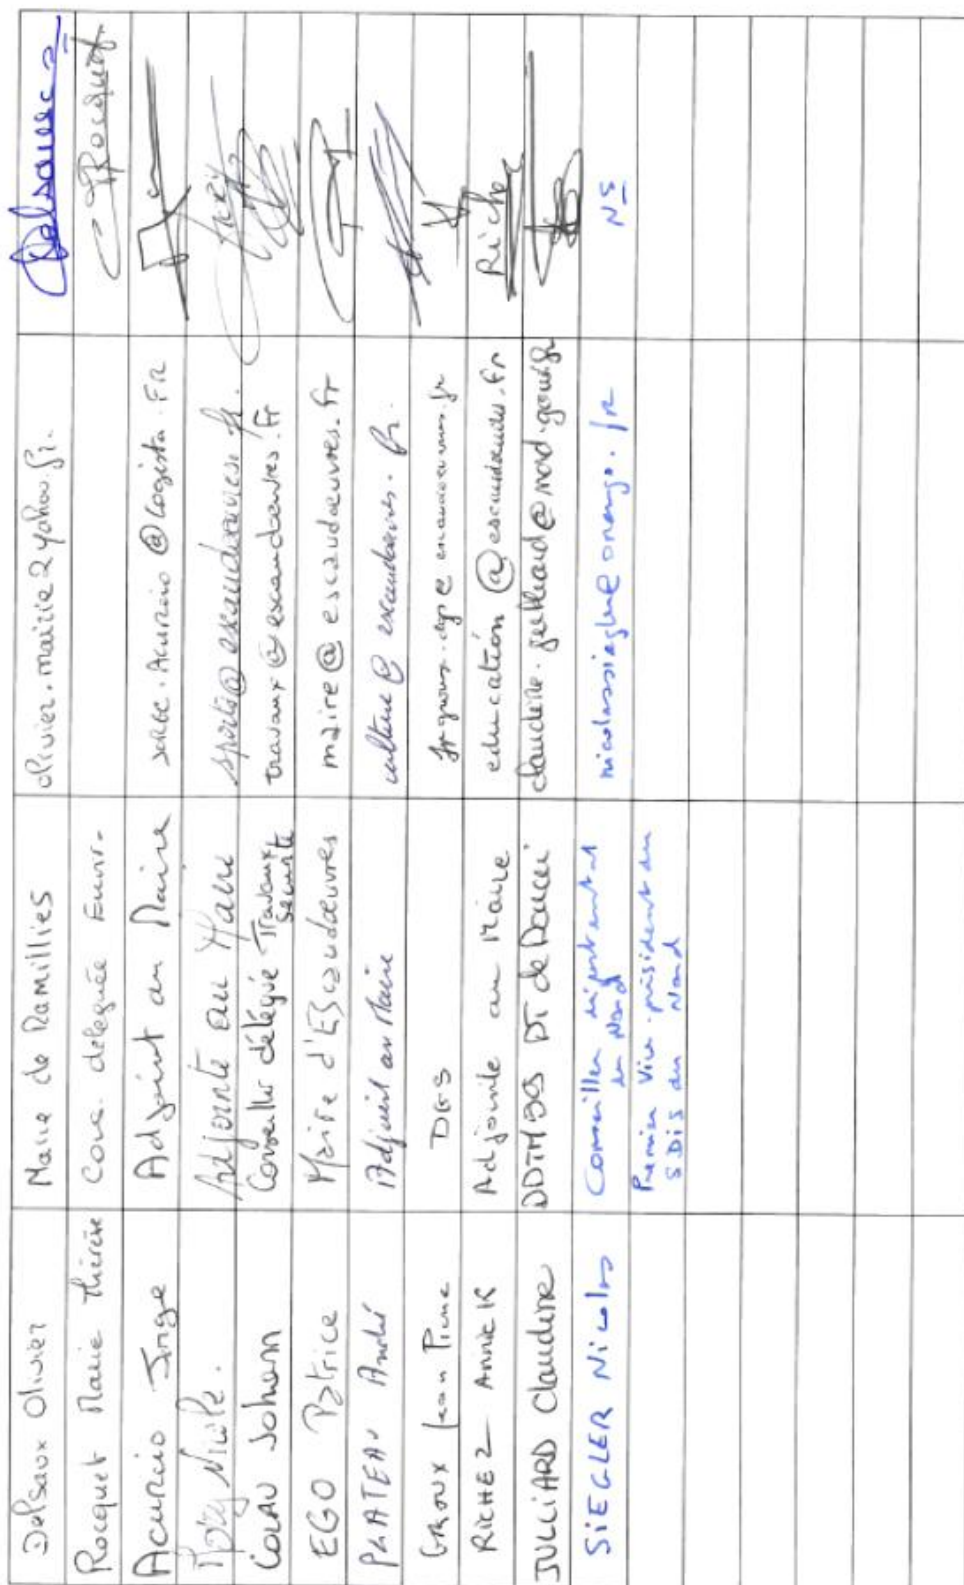 Delsaux Olivier Maire de Ramillies olivier.mairie2yahoo.fr.
Rocquet Marie Thérèse Cons. déléguée Envir. Rocquet
Acuricio Jorge Adjoint au Maire @logista.FR
Nicole. Adjointe au Maire sports@escaudoeuvres.fr.
COLAU Johann Conseiller délégué Travaux
Sécurité travaux@escaudoeuvres.fr
EGO Patrice Maire d'Escaudoeuvres maire@escaudoeuvres.fr
PLATEAU André Adjoint au Maire culture@escaudoeuvres.fr.
GROUX Jean Pierre DGS
RICHEZ Annick Adjointe au Maire education@escaudoeuvres.fr Richez
JULLIARD Claudine DDTM59 DT de Douai claudine.julliard@nord.gouv.fr
SIEGLER Nicolas Conseiller départemental
du Nord nicolassiegler@orange.fr NS
Premier Vice-président du
SDIS du Nord